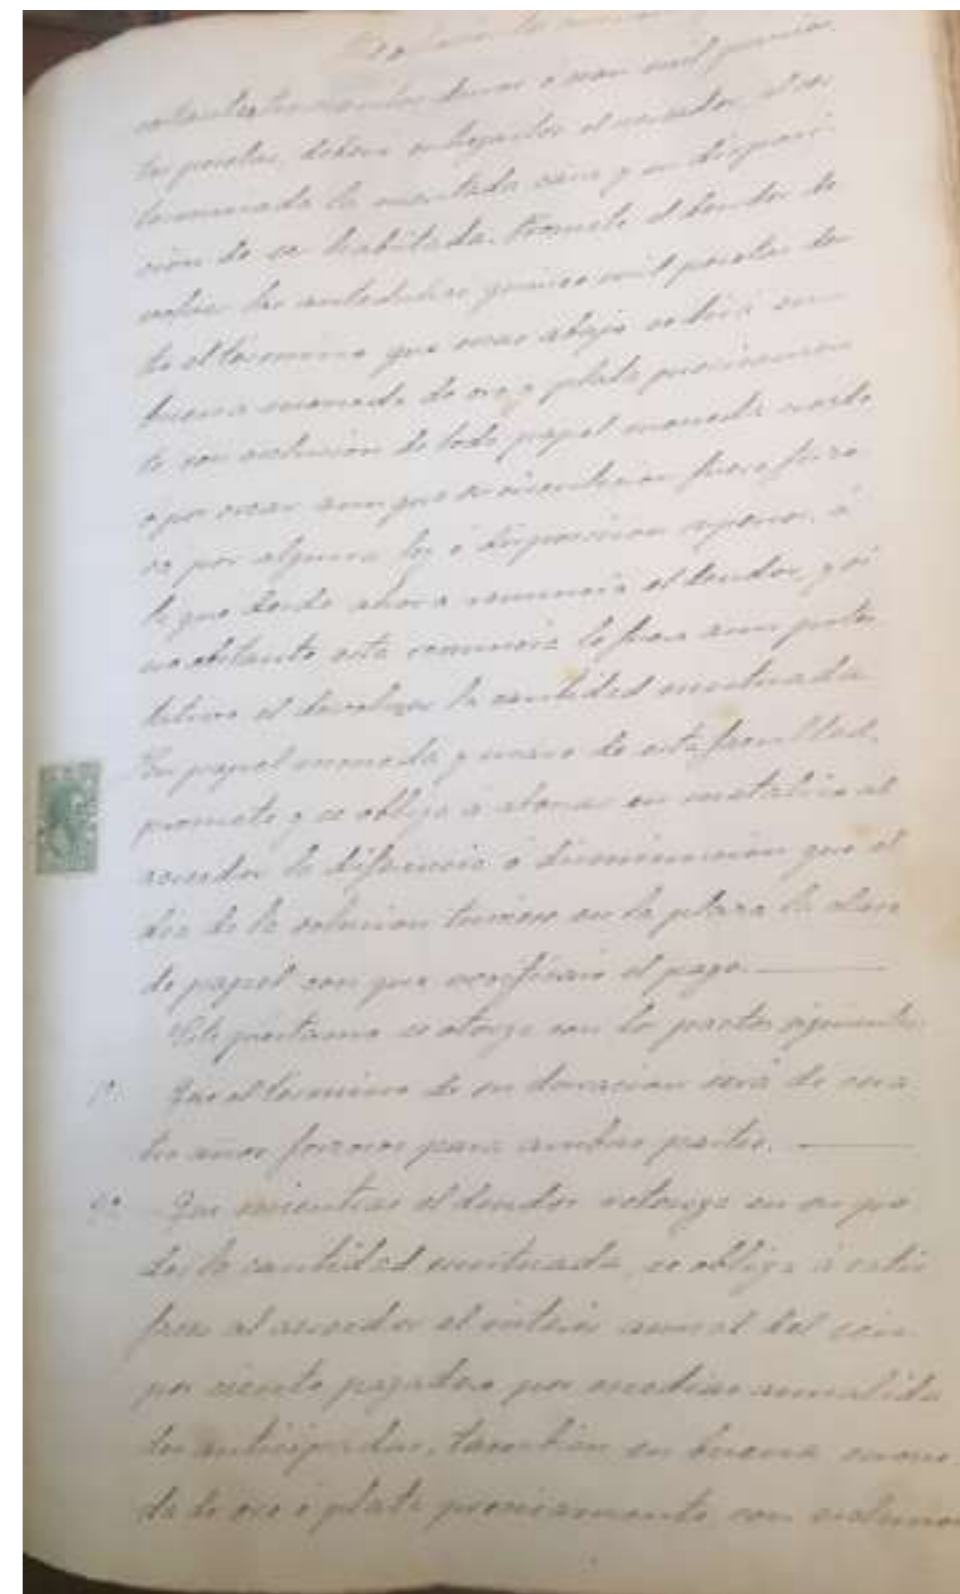 duros ó sean mil quinien
tas pesetas, deberá entregarlas el acreedor, al ser
terminada la mentada casa y en disposi-
ción de ser habitada. Promete el deudor de
volver las antedichas quince mil pesetas den
tro el término que mas abajo se dirá con
buena moneda de oro ó plata precisamen
te con exclusion de todo papel moneda creado
ó por crear aun que su circulacion fuera forzo
sa por alguna ley ó disposicion superior, á
lo que desde ahora renuncia el deudor, y si
no obstante esta renuncia le fuera aun potes
tativo el devolver la cantidad mutuada
en papel moneda y usare de esta facultad,
promete y se obliga á abonar en metálico al
acreedor la diferencia ó disminucion que el
dia de la solucion tuviese en la plaza la clase
de papel con que verificare el pago.
Este préstamo se otorga con los pactos siguientes:
1º. Que el término de su duracion será de cua
tro años forzosos para ambas partes.
2º. Que mientras el deudor retenga en su po
der la cantidad mutuada, se obliga á satis
facer al acreedor el interés anual del seis
por ciento pagadero por medias anualida
des anticipadas, tambien en buena mone
da de oro ó plata precisamente, con exclusion